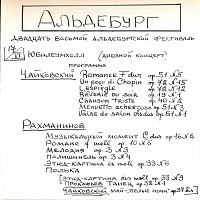 АЛЬДЕБУРГ
ДВАДЦАТЬ ВОСЬМОЙ АЛЬДЕБУРГСКИЙ ФЕСТИВАЛЬ
17/VI ЮБИЛЕЙХОЛЛ (ДНЕВНОЙ КОНЦЕРТ)
ПРОГРАММА
ЧАЙКОВСКИЙ ROMANCE F dur op. 51 №5
UN POCO DI CHOPIN op 72 №15
L'ESPIÈGLE op 72 №12
RÊVERIE DU SOIR op 19 №1
CHANSON TRISTE op 40 №2
MENUETTO SCHERZOSO op 51 №3
VALSE DE SALON op 51 №1
РАХМАНИНОВ
МУЗЫКАЛЬНЫЙ МОМЕНТ C dur op 16 №6
РОМАНС f moll op 10 №6
МЕЛОДИЯ op 3 №3
ПОЛИШИНЕЛЬ op 3 №4
ЭТЮД-КАРТИНА es moll op 33 №6
ПОЛЬКА
ЭТЮД-КАРТИНА es moll op 33
ПРОКОФЬЕВ ТАНЕЦ op 32 №1
ЧАЙКОВСКИЙ МАЙ-БЕЛЫЕ НОЧИ op 37